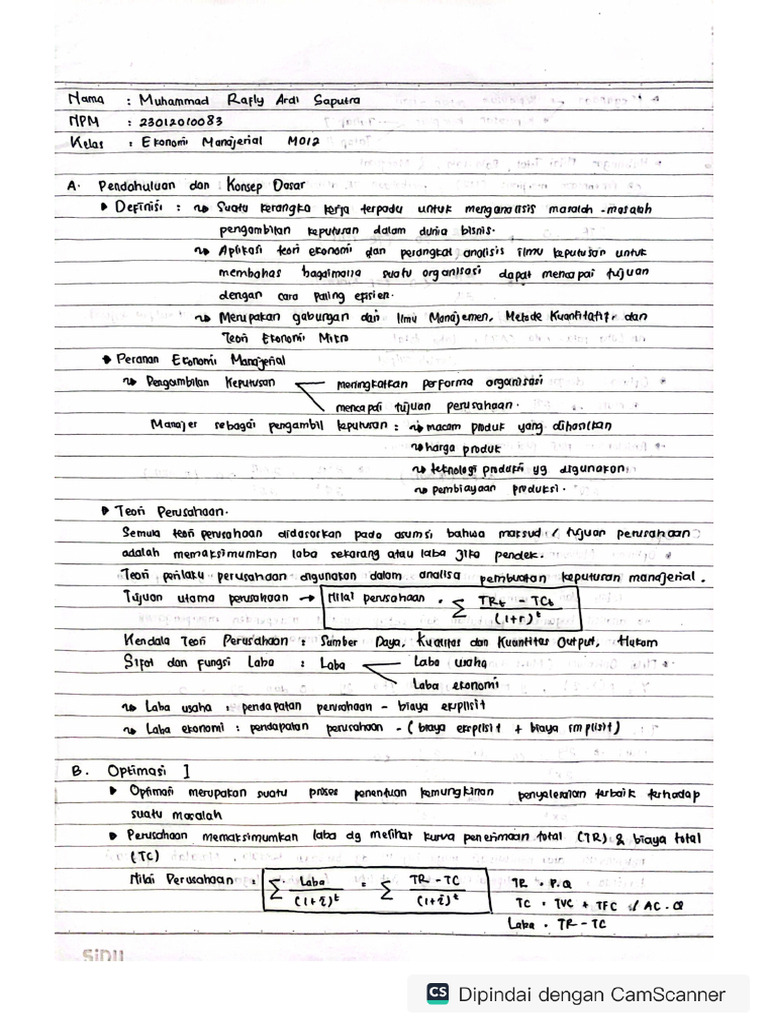 Nama : Muhammad Rafly Ardi Saputra
NPM : 23012010083
Kelas : Ekonomi Manajerial M012
A. Pendahuluan dan Konsep Dasar
▶ Definisi : ~> Suatu kerangka kerja terpadu untuk menganalisis masalah-masalah
pengambilan keputusan dalam dunia bisnis.
~> Aplikasi teori ekonomi dan perangkat analisis ilmu keputusan untuk
membahas bagaimana suatu organisasi dapat mencapai tujuan
dengan cara paling efisien.
~> Merupakan gabungan dari Ilmu Manajemen, Metode Kuantitatif, dan
Teori Ekonomi Mikro
▶ Peranan Ekonomi Manajerial
~> Pengambilan Keputusan meningkatkan performa organisasi
mencapai tujuan perusahaan.
Manajer sebagai pengambil keputusan : ~> macam produk yang dihasilkan
~> harga produk
~> teknologi produksi yg digunakan
~> pembiayaan produksi.
▶ Teori Perusahaan.
Semula teori perusahaan didasarkan pada asumsi bahwa maksud / tujuan perusahaan
adalah memaksimumkan laba sekarang atau laba jika pendek.
Teori perilaku perusahaan digunakan dalam analisa pembuatan keputusan manajerial.
Tujuan utama perusahaan → Nilai perusahaan = Σ TRt - TCt / (1+r)^t
Kendala Teori Perusahaan : Sumber Daya, Kualitas dan Kuantitas Output, Hukum
Sifat dan fungsi Laba : Laba Laba usaha
Laba ekonomi
~> Laba usaha : pendapatan perusahaan - biaya eksplisit
~> Laba ekonomi : pendapatan perusahaan - (biaya eksplisit + biaya implisit)
B. Optimasi ]
▶ Optimasi merupakan suatu proses penentuan kemungkinan penyelesaian terbaik terhadap
suatu masalah
▶ Perusahaan memaksimumkan laba dg melihat kurva penerimaan total (TR) & biaya total
(TC)
Nilai Perusahaan : Σ Laba / (1+i)^t = Σ TR - TC / (1+i)^t TR = P.Q
TC = TVC + TFC / AC . Q
Laba = TR - TC
SiDU
CS Dipindai dengan CamScanner